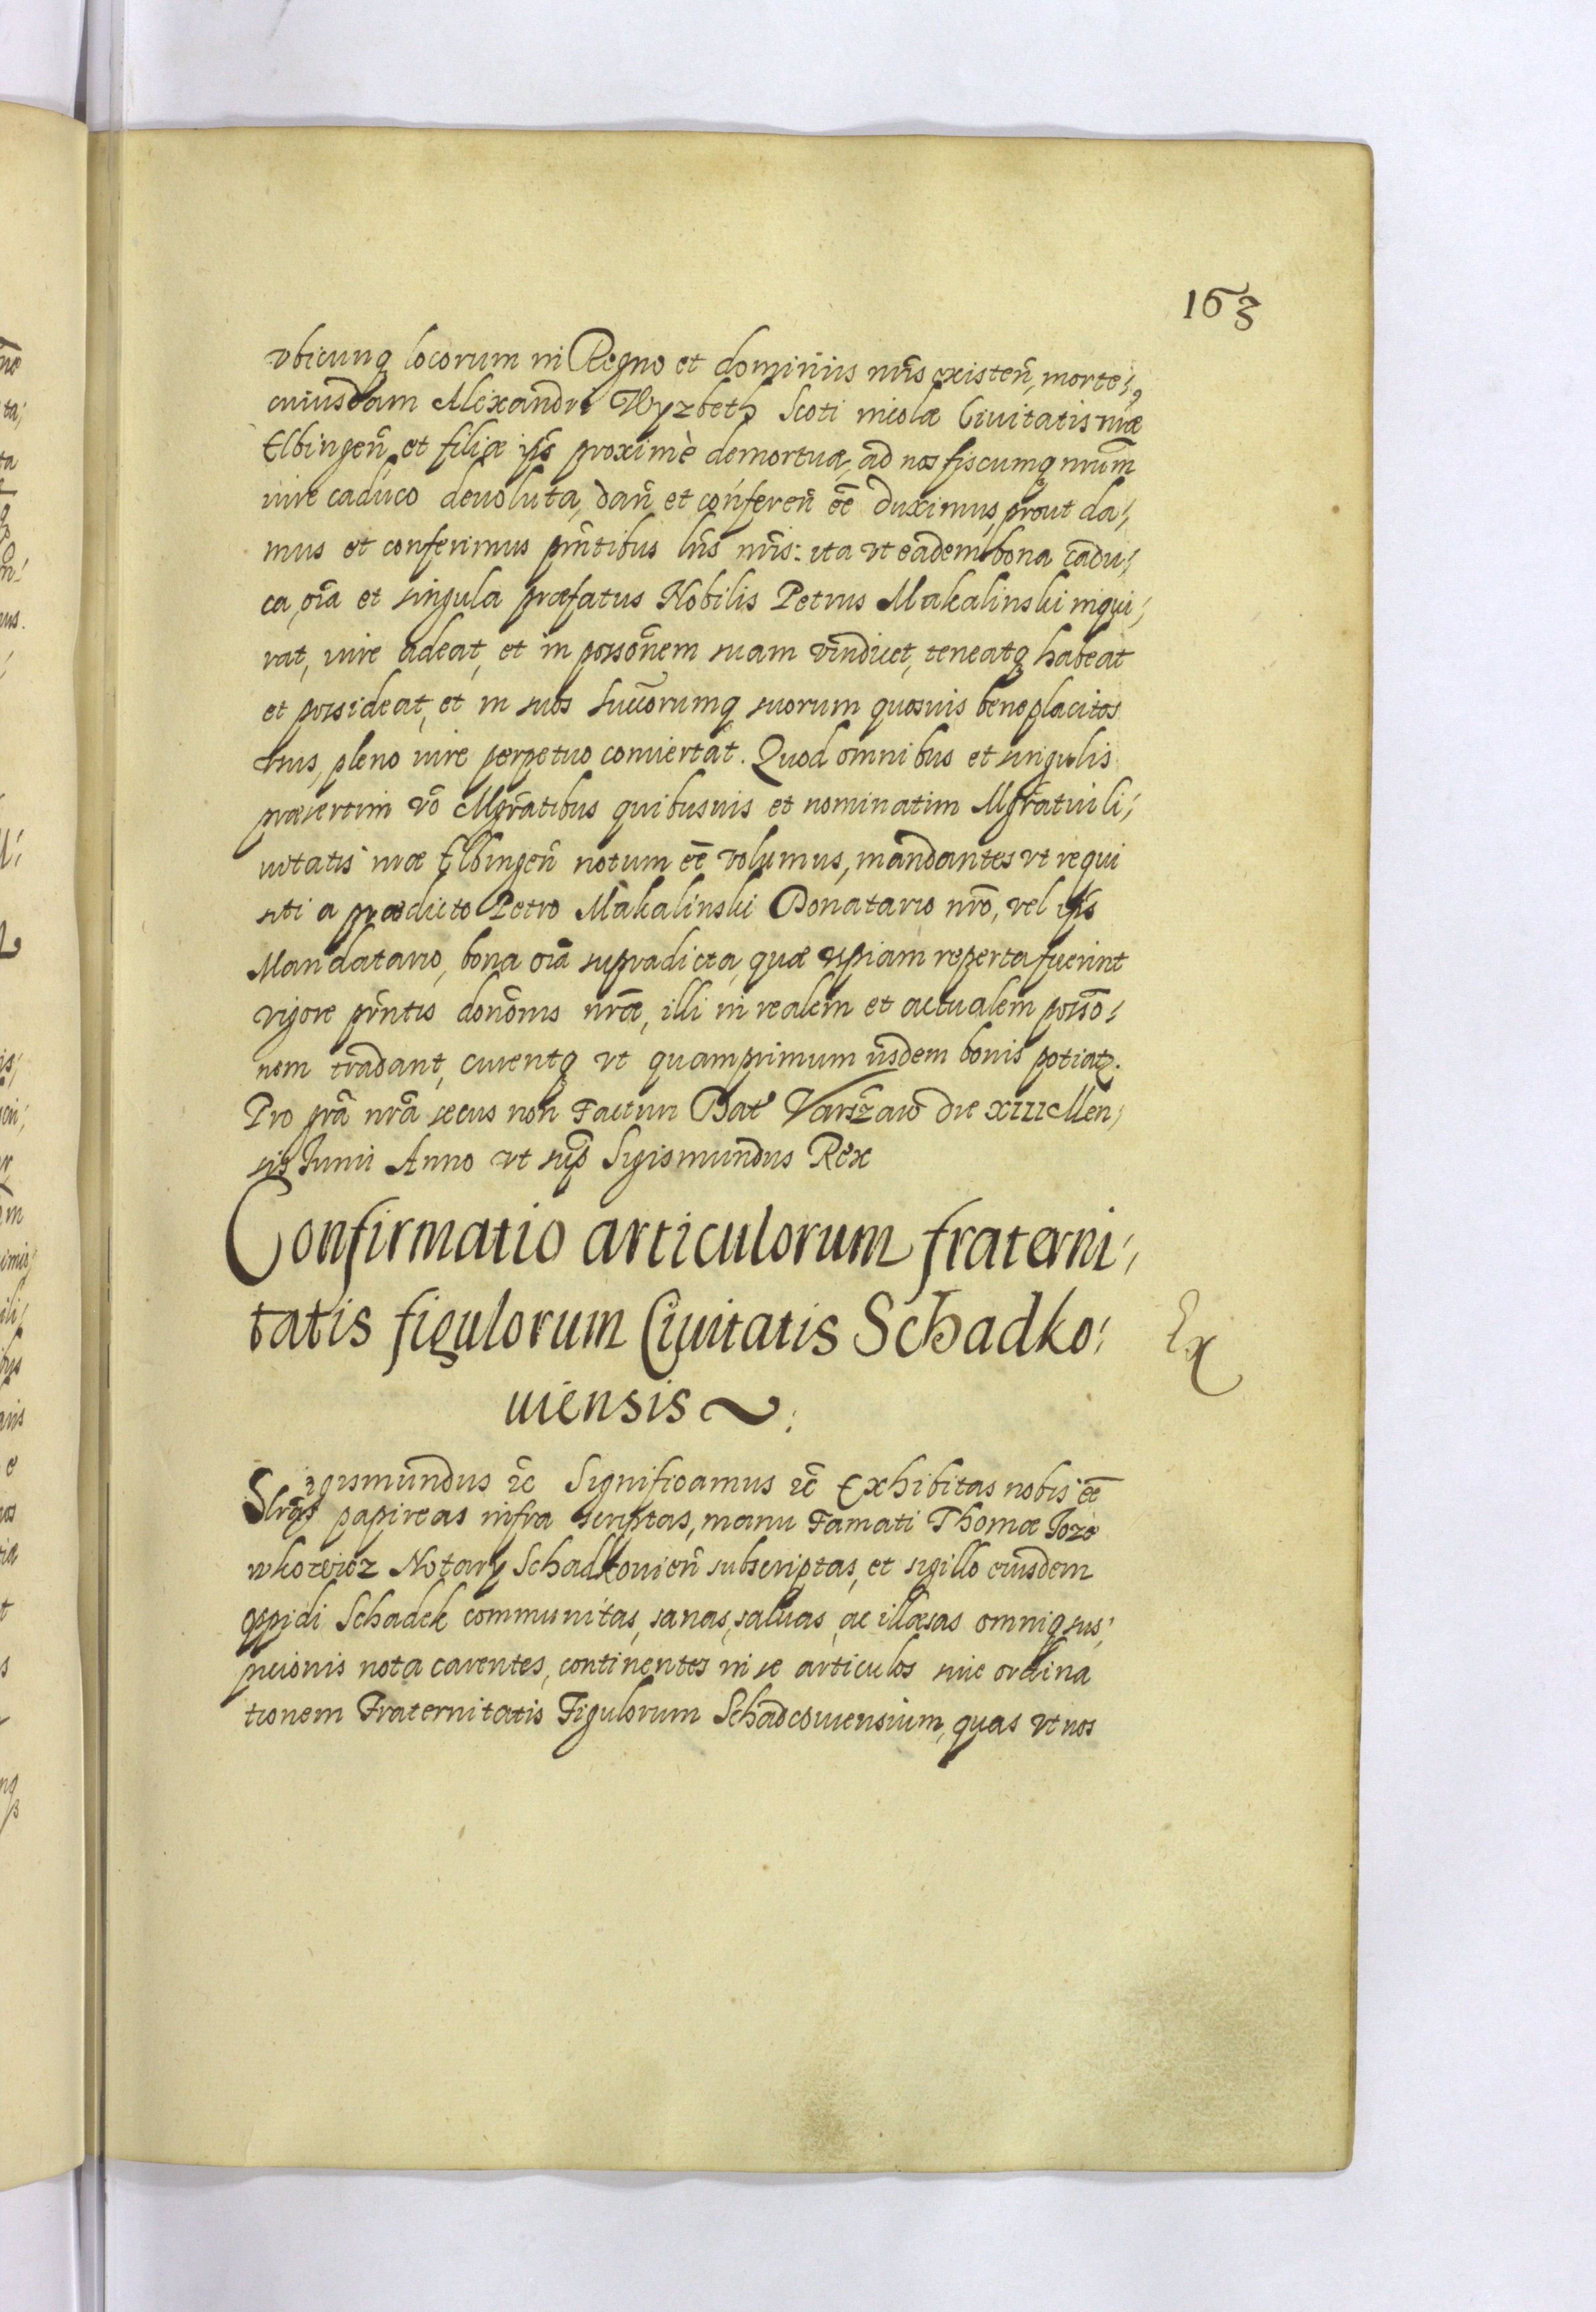 163
vbicunq locorum in Regno et dominiis nr̃is existeñ, morte,
cuiusdam Alexandri Wyzbeth Scoti incolæ Ciuitatis nræ
Elbingeñ et filiæ ip̃s proximè demortuæ, ad nos fiscumq nrũm
iure caduco deuoluta, dañ et confereñ eẽ duximus, prout da,
mus et conferimus pñtibus lr̃is nr̃is: ita vt eadem bona cadu,
ca, oĩa et singula præfatus Nobilis Petrus Makalinski inqui,
rat, iure adeat, et in possõnem suam vindicet, teneatq habeat
et possideat, et in suos Succorumq suorum quosuis beneplacitos
vsus, pleno iure perpetuo conuertat. Quod omnibus et singulis
præsertim võ Mgr̃atibus quibusuis et nominatim Mgr̃atui Ci,
uitatis nræ Elbingeñ notum eẽ volumus, mandantes vt requi
siti a prædicto Petro Makalinski Donatario nrõ, vel ip̃s
Mandatario, bona oĩa supradicta, quæ vspiam reperta fuerint
vigore pñtis donõnis nræ̃, illi in realem et actualem possõ,
nem tradant, curentq vt quamprimum iisdem bonis potiatr.
Pro grã nrã secus non facturi Dat Varszaw die XIII Men,
sis Junii Anno vt sup̃ Sigismundus Rex
Confirmatio articulorum fraterni,
tatis figulorum Ciuitatis Schadko,
uiensis
Ex
Sigismundus ec̃ Significamus ec̃ Exhibitas nobis eẽ
lrãs papireas infra scriptas, manu Famati Thomæ Jozo
wkowicz Notarÿ Schadkouieñ subscriptas, et sigillo eiusdem
oppidi Schadek communitas, sanas, saluas, ac illæsas omniq sus,
picionis nota carentes, continentes in se articulos siue ordina
tionem Fraternitatis Figulorum Schadcouiensium, quas vt nos